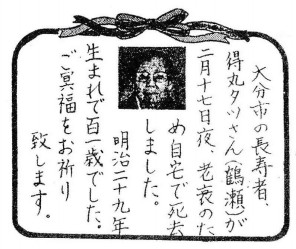 大分市の長寿者、
得丸タツさん(鶴瀬)が
二月十七日夜、老衰のた
め自宅で死去
しました。
明治二十九年
生まれで百一歳でした。
ご冥福をお祈り
致します。